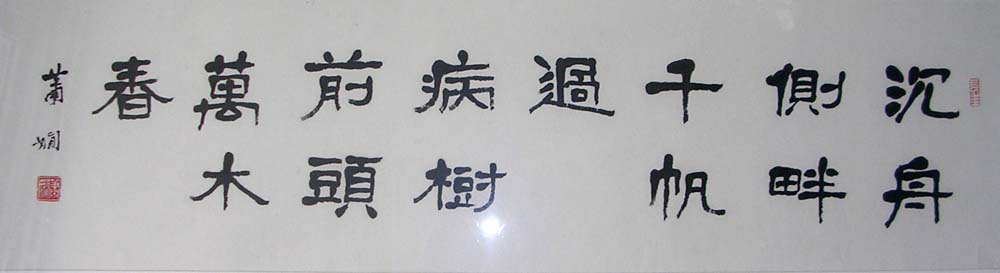 沉舟
側畔
千帆
過
病樹
前頭
萬木
春